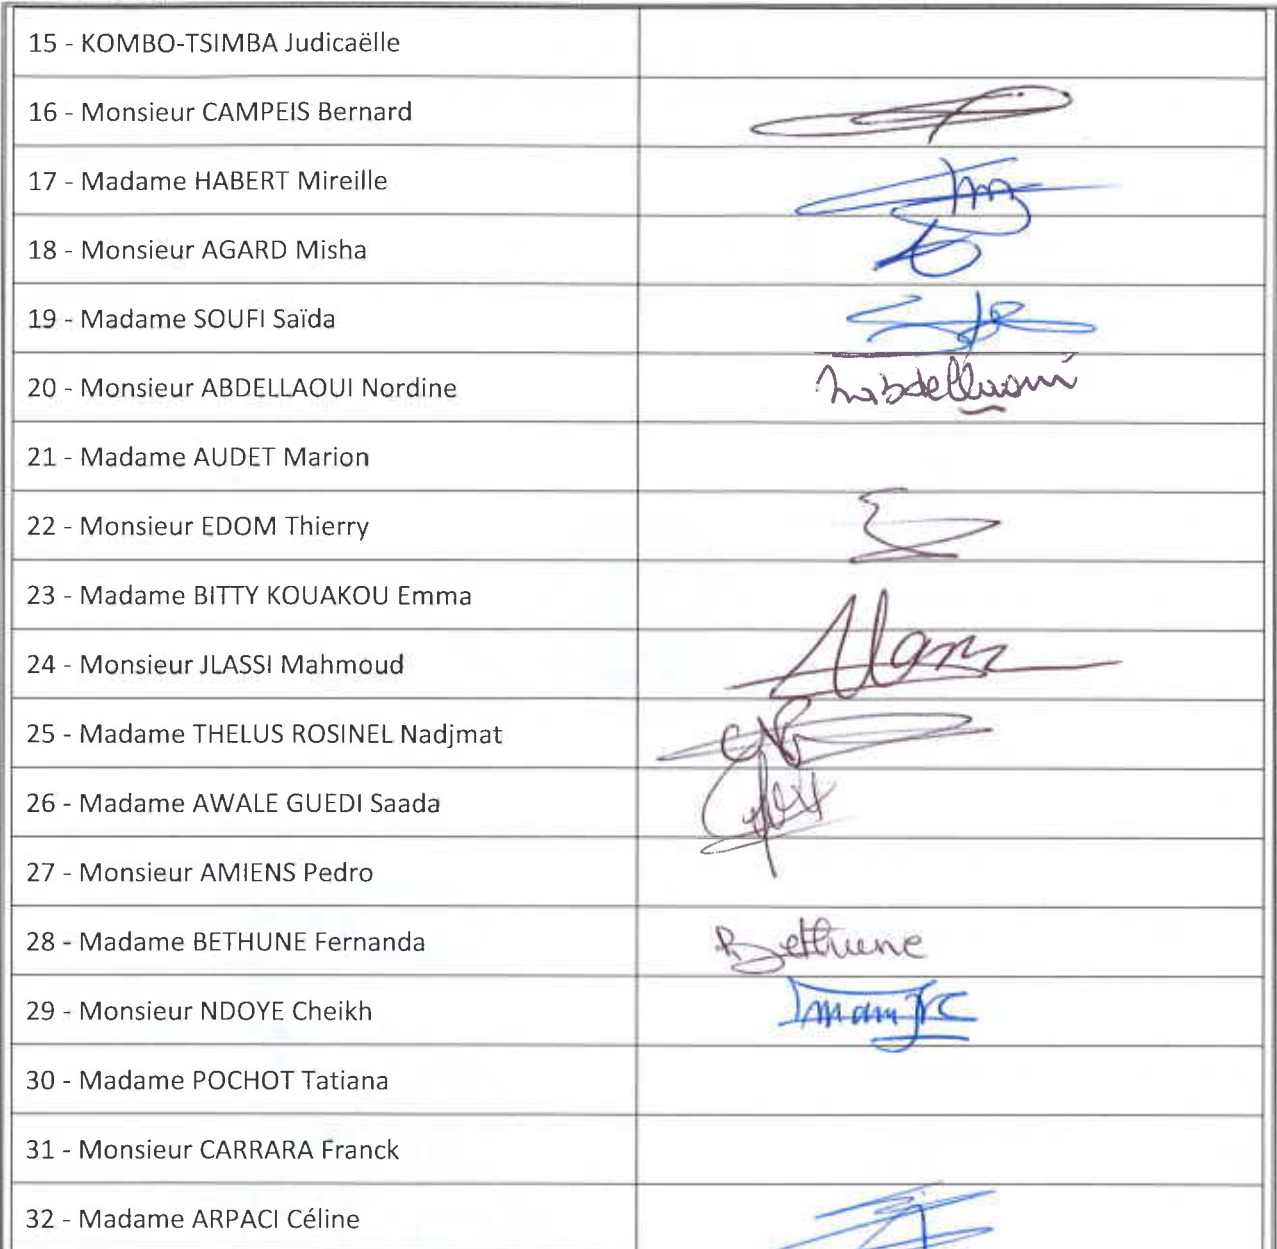 15 - KOMBO-TSIMBA Judicaëlle
16 - Monsieur CAMPEIS Bernard
17 - Madame HABERT Mireille
18 - Monsieur AGARD Misha
19 - Madame SOUFI Saïda
20 - Monsieur ABDELLAOUI Nordine
21 - Madame AUDET Marion
22 - Monsieur EDOM Thierry
23 - Madame BITTY KOUAKOU Emma
24 - Monsieur JLASSI Mahmoud
25 - Madame THELUS ROSINEL Nadjmat
26 - Madame AWALE GUEDI Saada
27 - Monsieur AMIENS Pedro
28 - Madame BETHUNE Fernanda Bethune
29 - Monsieur NDOYE Cheikh
30 - Madame POCHOT Tatiana
31 - Monsieur CARRARA Franck
32 - Madame ARPACI Céline